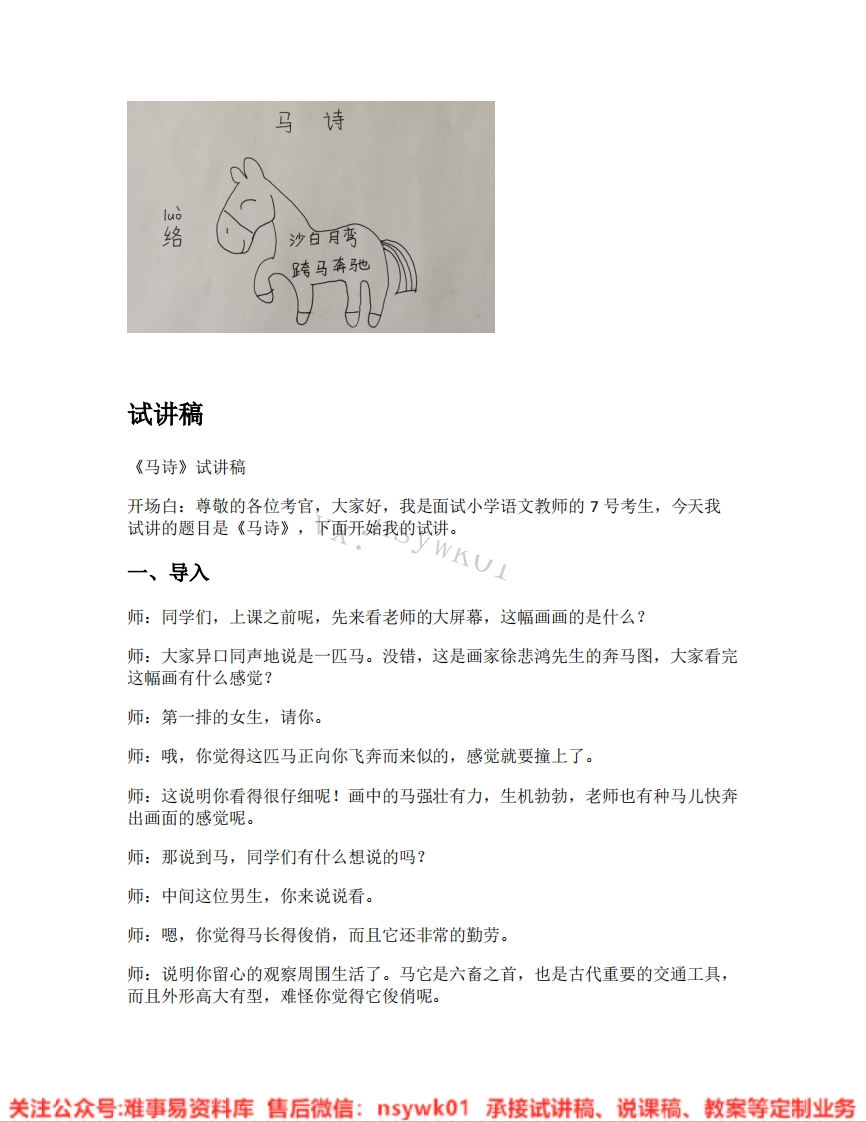 马 诗
luò
络
沙白月弯
跨马奔驰
试讲稿
《马诗》试讲稿
开场白：尊敬的各位考官，大家好，我是面试小学语文教师的 7 号考生，今天我
试讲的题目是《马诗》，下面开始我的试讲。
vx：nsywk01
一、导入
师：同学们，上课之前呢，先来看老师的大屏幕，这幅画画的是什么？
师：大家异口同声地说是一匹马。没错，这是画家徐悲鸿先生的奔马图，大家看完
这幅画有什么感觉？
师：第一排的女生，请你。
师：哦，你觉得这匹马正向你飞奔而来似的，感觉就要撞上了。
师：这说明你看得很仔细呢！画中的马强壮有力，生机勃勃，老师也有种马儿快奔
出画面的感觉呢。
师：那说到马，同学们有什么想说的吗？
师：中间这位男生，你来说说看。
师：嗯，你觉得马长得俊俏，而且它还非常的勤劳。
师：说明你留心的观察周围生活了。马它是六畜之首，也是古代重要的交通工具，
而且外形高大有型，难怪你觉得它俊俏呢。
关注公众号:难事易资料库 售后微信：nsywk01 承接试讲稿、说课稿、教案等定制业务